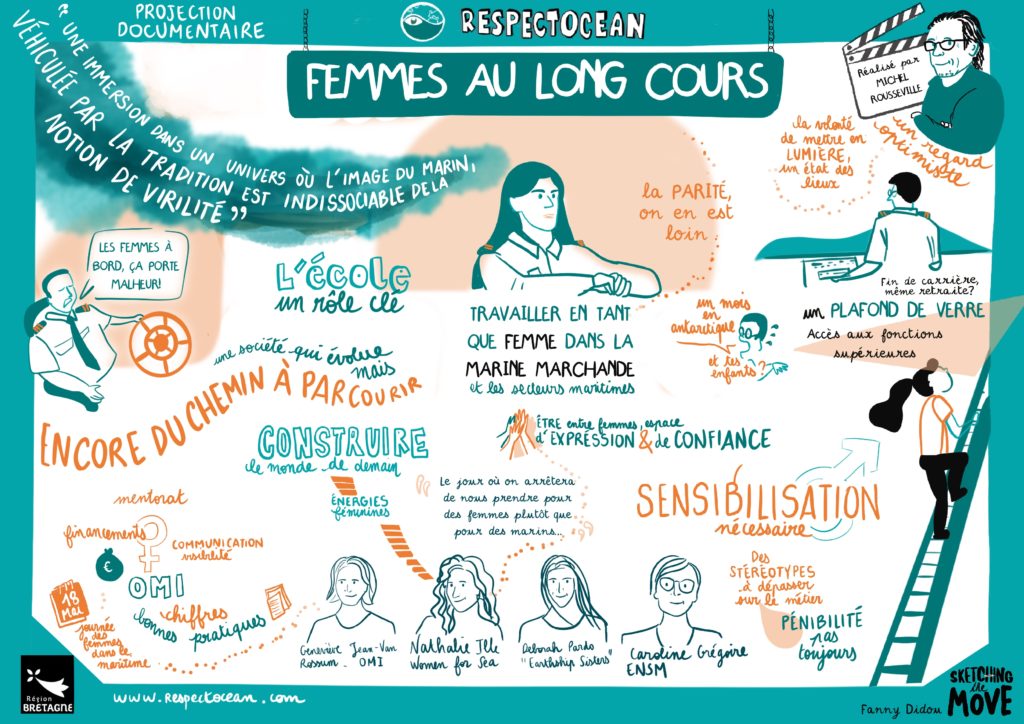 PROJECTION
DOCUMENTAIRE
RESPECTOCEAN
FEMMES AU LONG COURS
Réalisé par
MICHEL
ROUSSEVILLE
un regard
optimiste
la volonté
de mettre en
LUMIÈRE,
un état des
lieux
"UNE IMMERSION DANS UN UNIVERS OÙ L'IMAGE DU MARIN,
VÉHICULÉE PAR LA TRADITION EST INDISSOCIABLE DE LA
NOTION DE VIRILITÉ"
LES FEMMES À
BORD, ÇA PORTE
MALHEUR!
L'école
un rôle clé
la PARITÉ,
on en est
loin
TRAVAILLER EN TANT
QUE FEMME DANS LA
MARINE MARCHANDE
et les secteurs maritimes
un mois
en
antarctique
et tes
enfants?
Fin de carrière,
même retraite?
un PLAFOND DE VERRE
Accès aux fonctions
supérieures
une société qui évolue
mais
ENCORE DU CHEMIN À PARCOURIR
CONSTRUIRE
le monde de demain
ÉNERGIES
féminines
ÊTRE entre femmes, espace
d'EXPRESSION & de CONFIANCE
Le jour où on arrêtera
de nous prendre pour
des femmes plutôt que
pour des marins...
SENSIBILISATION
nécessaire
mentorat
financements
COMMUNICATION
visibilité
€
OMI
chiffres
bonnes pratiques
18
Mai
journée
des
femmes
dans le
maritime
Geneviève Jean-Van
Rossum _ OMI
Nathalie Ille
Women for Sea
Deborah Pardo
"Earthship Sisters"
Caroline Grégoire
ENSM
Des
STÉRÉOTYPES
à dépasser
sur le métier
PÉNIBILITÉ
pas
toujours
Région
BRETAGNE
www.respectocean.com
Fanny Didou
SKETCHING
the
MOVE